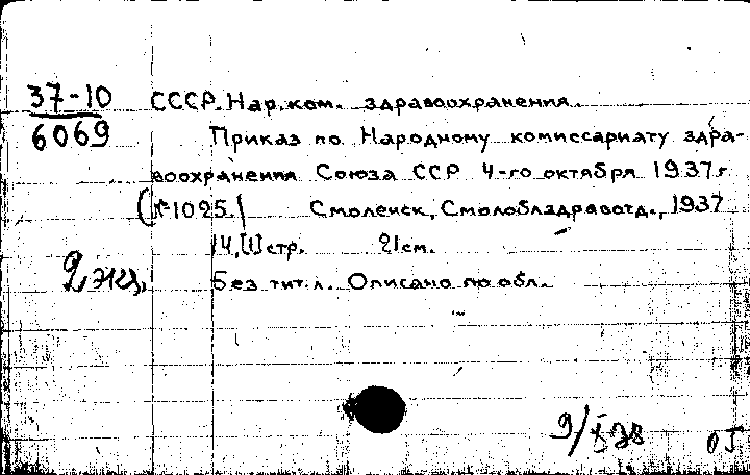 37-10
6069
СССР. Нар. ком. здравоохранения.
Приказ по Народному комиссариату здра-
воохранения Союза ССР 4-го октября 1937 г
(№ 1025.) Смоленск, Смолоблздравотд., 1937
14, [1] стр. 21 см.
2 экз.
Без тит. л. Описано по обл.
9/X 38